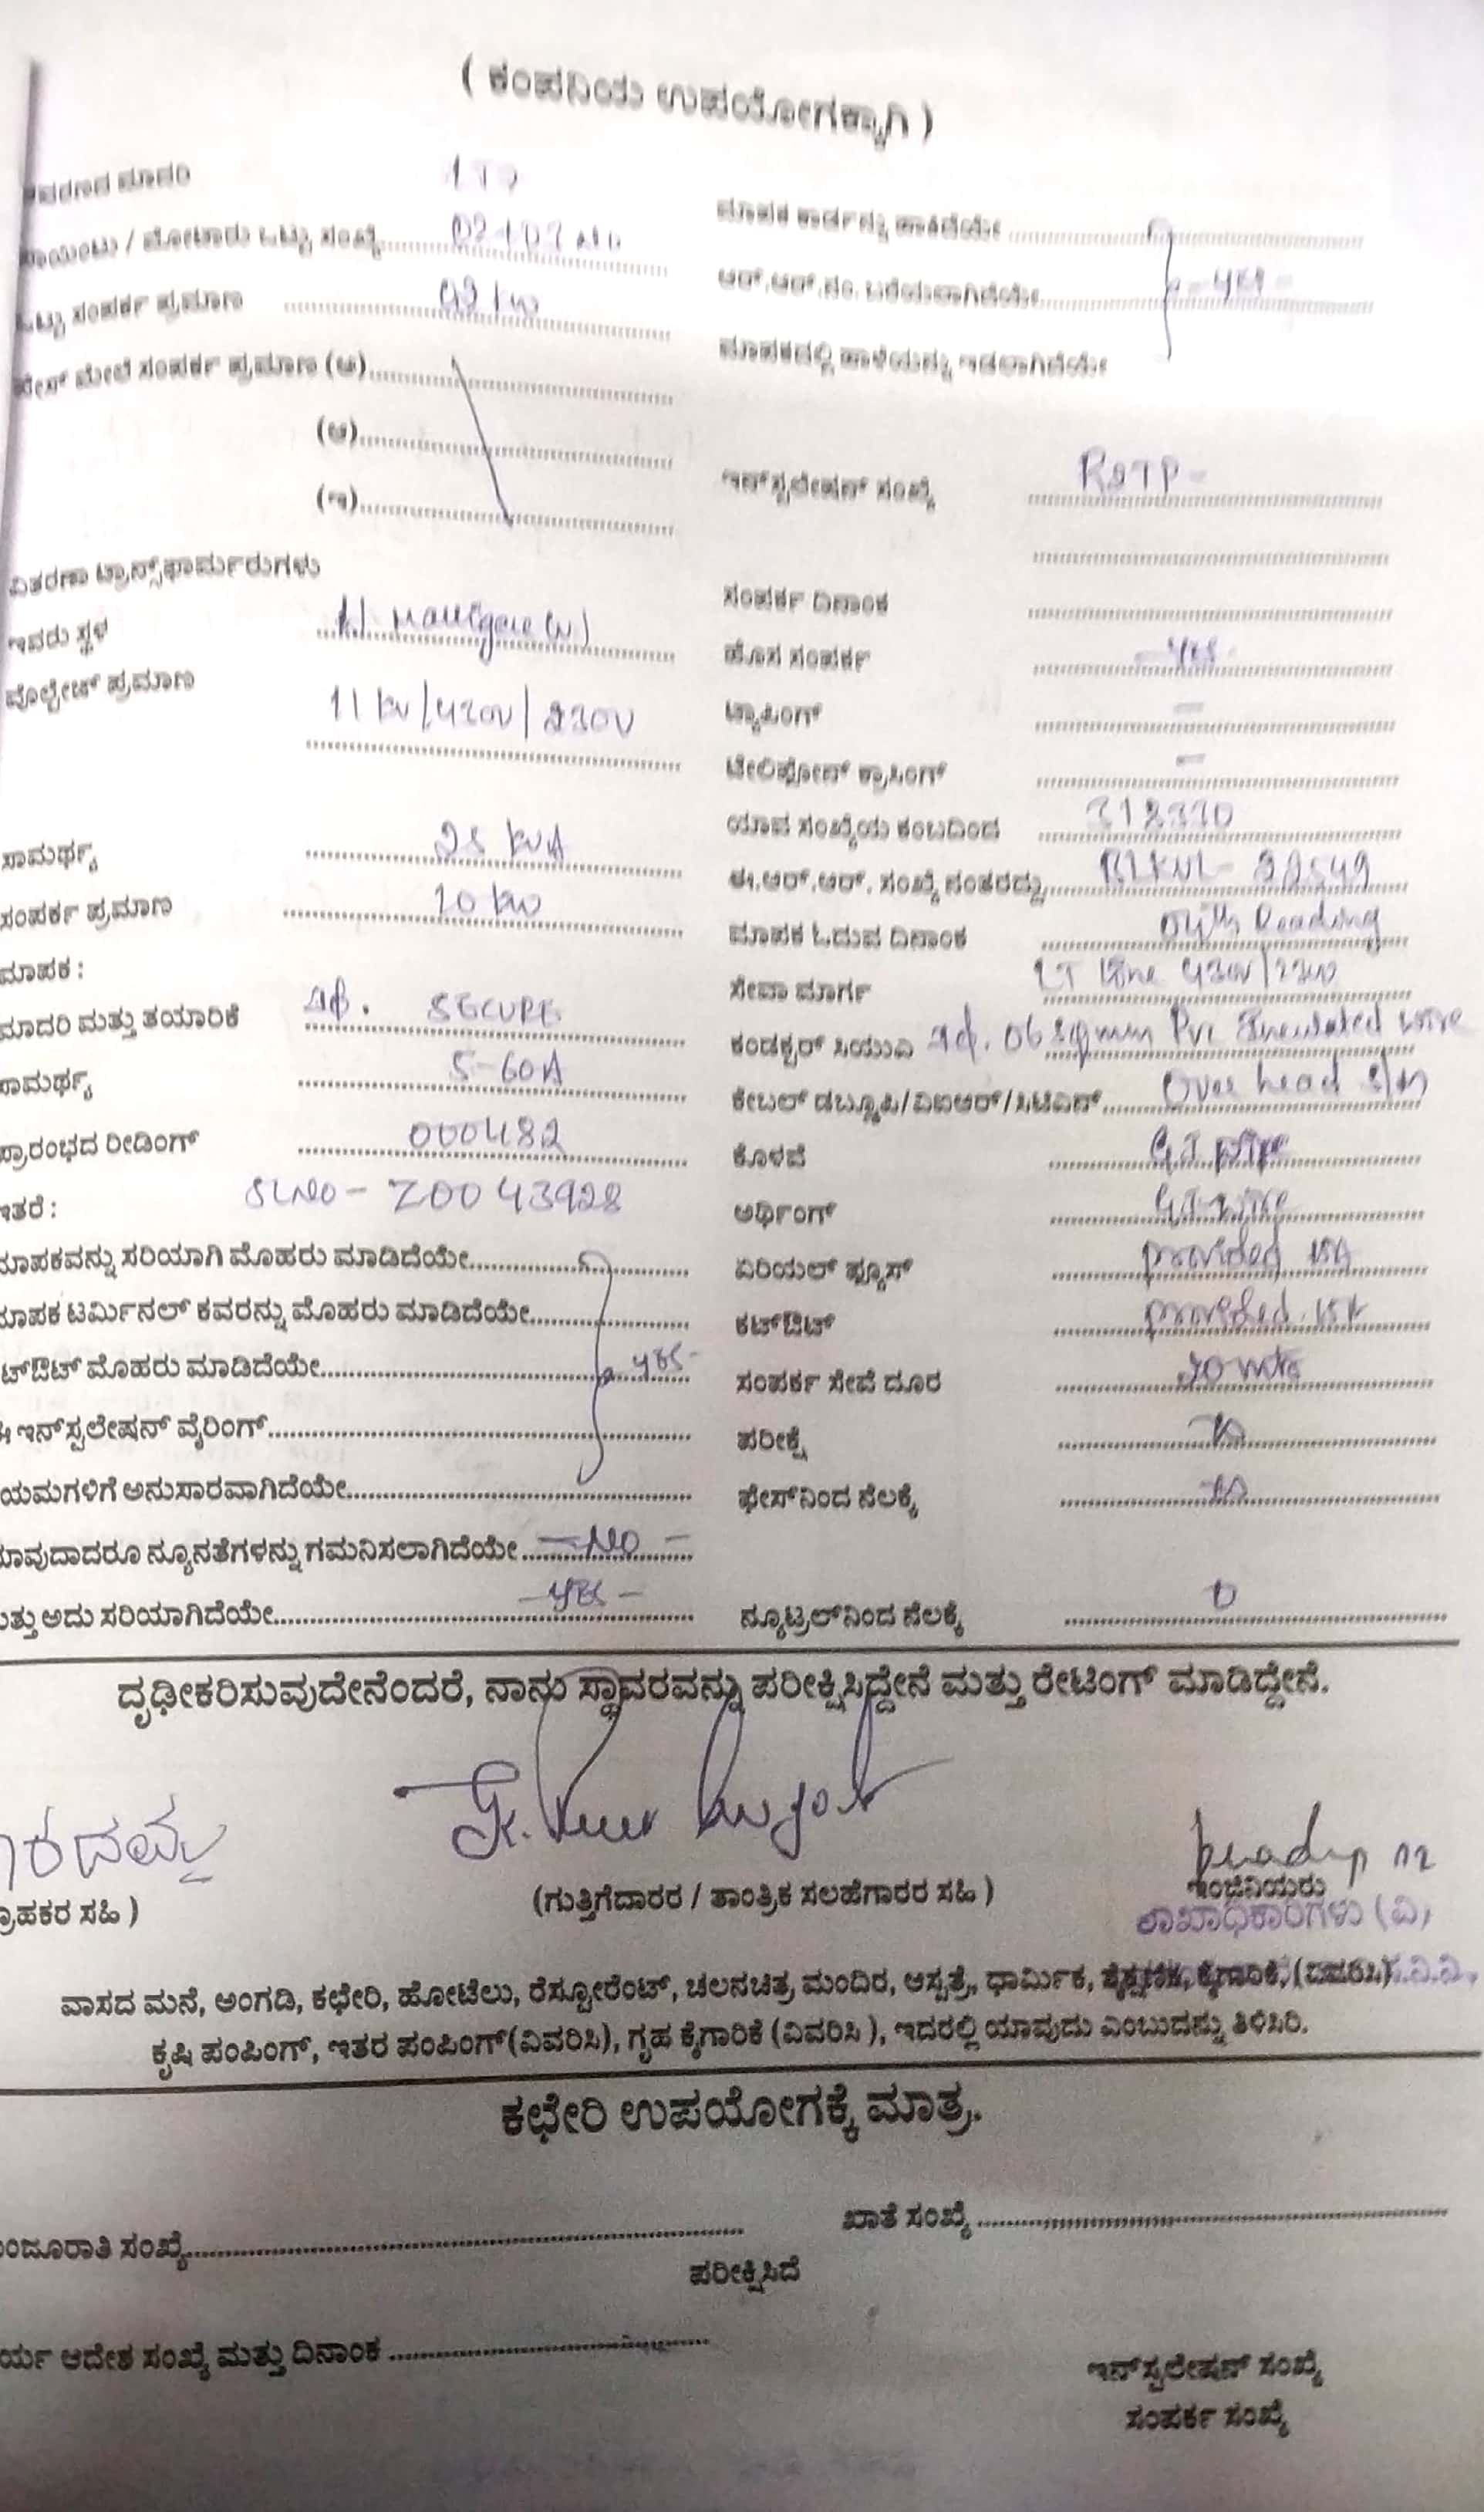 ( ಕಂಪನಿಯ ಉಪಯೋಗಕ್ಕಾಗಿ )
ಮಾದರಿ
/ ಮೋಟಾರು ಒಟ್ಟು ಸಂಖ್ಯೆ
ಒಟ್ಟು ಸಂಪರ್ಕ ಪ್ರಮಾಣ 02 kw
ಫೇಸ್ ಮೇಲೆ ಸಂಪರ್ಕ ಪ್ರಮಾಣ (ಅ)
(ಆ)
(ಇ)
ವಿತರಣಾ ಟ್ರಾನ್ಸ್‌ಫಾರ್ಮರುಗಳು
ಇವರು ಸ್ಥಳ
ವೊಲ್ಟೇಜ್ ಪ್ರಮಾಣ 11 kv/430V/230V
ಸಾಮರ್ಥ್ಯ 25 KVA
ಸಂಪರ್ಕ ಪ್ರಮಾಣ 10 kw
ಮಾಪಕ :
ಮಾದರಿ ಮತ್ತು ತಯಾರಿಕೆ 1ф. SECURE
ಸಾಮರ್ಥ್ಯ 5-60A
ಪ್ರಾರಂಭದ ರೀಡಿಂಗ್ 000482
ಇತರೆ : SLNO - Z0043928
ಮಾಪಕವನ್ನು ಸರಿಯಾಗಿ ಮೊಹರು ಮಾಡಿದೆಯೇ
ಮಾಪಕ ಟರ್ಮಿನಲ್ ಕವರನ್ನು ಮೊಹರು ಮಾಡಿದೆಯೇ
ಟ್‌ಔಟ್ ಮೊಹರು ಮಾಡಿದೆಯೇ YES-
ಈ ಇನ್‌ಸ್ಟಲೇಷನ್ ವೈರಿಂಗ್
ಯಮಗಳಿಗೆ ಅನುಸಾರವಾಗಿದೆಯೇ
ಯಾವುದಾದರೂ ನ್ಯೂನತೆಗಳನ್ನು ಗಮನಿಸಲಾಗಿದೆಯೇ -NO-
ಮತ್ತು ಅದು ಸರಿಯಾಗಿದೆಯೇ -YES-
ಮಾಪಕ ಕಾರ್ಡನ್ನು ಹಾಕಿದೆಯೇ
ಆರ್.ಆರ್.ನಂ. ಬರೆಯಲಾಗಿದೆಯೇ
ಮಾಪಕದಲ್ಲಿ ಹಾಳೆಯನ್ನು ಇಡಲಾಗಿದೆಯೇ
ಇನ್‌ಸ್ಟಲೇಷನ್ ಸಂಖ್ಯೆ
ಸಂಪರ್ಕ ದಿನಾಂಕ
ಹೊಸ ಸಂಪರ್ಕ -YES-
ಟ್ಯಾಪಿಂಗ್ -
ಟೇಲಿಫೋನ್ ಕ್ರಾಸಿಂಗ್ -
ಯಾವ ಸಂಖ್ಯೆಯ ಕಂಬದಿಂದ
ಈ.ಆರ್.ಆರ್. ಸಂಖ್ಯೆ ನಂತರದ್ದು 22549
ಮಾಪಕ ಓದುವ ದಿನಾಂಕ Reading
ಸೇವಾ ಮಾರ್ಗ LT line
ಕಂಡಕ್ಟರ್ ಸಿಯುವಿ 1ф. 06 sqmm Pvc Insulated wire
ಕೇಬಲ್ ಡಬ್ಲ್ಯೂಪಿ/ವಿಐಆರ್/ಸಿಟಿಎಸ್ Over head
ಕೊಳವೆ GI pipe
ಅರ್ಥಿಂಗ್ GI wire
ಏರಿಯಲ್ ಫ್ಯೂಸ್ provided 15A
ಕಟ್‌ಔಟ್ provided 15A
ಸಂಪರ್ಕ ಸೇವೆ ದೂರ 20 mts
ಪರೀಕ್ಷೆ
ಫೇಸ್‌ನಿಂದ ನೆಲಕ್ಕೆ
ನ್ಯೂಟ್ರಲ್‌ನಿಂದ ನೆಲಕ್ಕೆ 0
ದೃಢೀಕರಿಸುವುದೇನೆಂದರೆ, ನಾನು ಸ್ಥಾವರವನ್ನು ಪರೀಕ್ಷಿಸಿದ್ದೇನೆ ಮತ್ತು ರೇಟಿಂಗ್ ಮಾಡಿದ್ದೇನೆ.
ರದಮ್ಮ
ಗ್ರಾಹಕರ ಸಹಿ )
(ಗುತ್ತಿಗೆದಾರರ / ತಾಂತ್ರಿಕ ಸಲಹೆಗಾರರ ಸಹಿ )
ಇಂಜಿನಿಯರು
ಶಾಖಾಧಿಕಾರಿಗಳು (ವಿ)
ವಾಸದ ಮನೆ, ಅಂಗಡಿ, ಕಛೇರಿ, ಹೋಟೆಲು, ರೆಸ್ಟೋರೆಂಟ್, ಚಲನಚಿತ್ರ ಮಂದಿರ, ಆಸ್ಪತ್ರೆ, ಧಾರ್ಮಿಕ, ಶೈಕ್ಷಣಿಕ, ಕೈಗಾರಿಕೆ, (ವಿವರಿಸಿ)
ಕೃಷಿ ಪಂಪಿಂಗ್, ಇತರ ಪಂಪಿಂಗ್(ವಿವರಿಸಿ), ಗೃಹ ಕೈಗಾರಿಕೆ (ವಿವರಿಸಿ ), ಇದರಲ್ಲಿ ಯಾವುದು ಎಂಬುದನ್ನು ತಿಳಿಸಿರಿ.
ಕಛೇರಿ ಉಪಯೋಗಕ್ಕೆ ಮಾತ್ರ.
ಮಂಜೂರಾತಿ ಸಂಖ್ಯೆ
ಖಾತೆ ಸಂಖ್ಯೆ
ಪರೀಕ್ಷಿಸಿದೆ
ರ್ಯ ಆದೇಶ ಸಂಖ್ಯೆ ಮತ್ತು ದಿನಾಂಕ
ಇನ್‌ಸ್ಟಲೇಷನ್ ಸಂಖ್ಯೆ
ಸಂಪರ್ಕ ಸಂಖ್ಯೆ